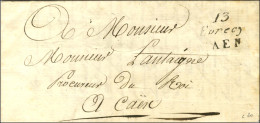 A Monsieur
Monsieur Lantaigne
Procureur du Roi
A Caën
13
Evrecy
AEN